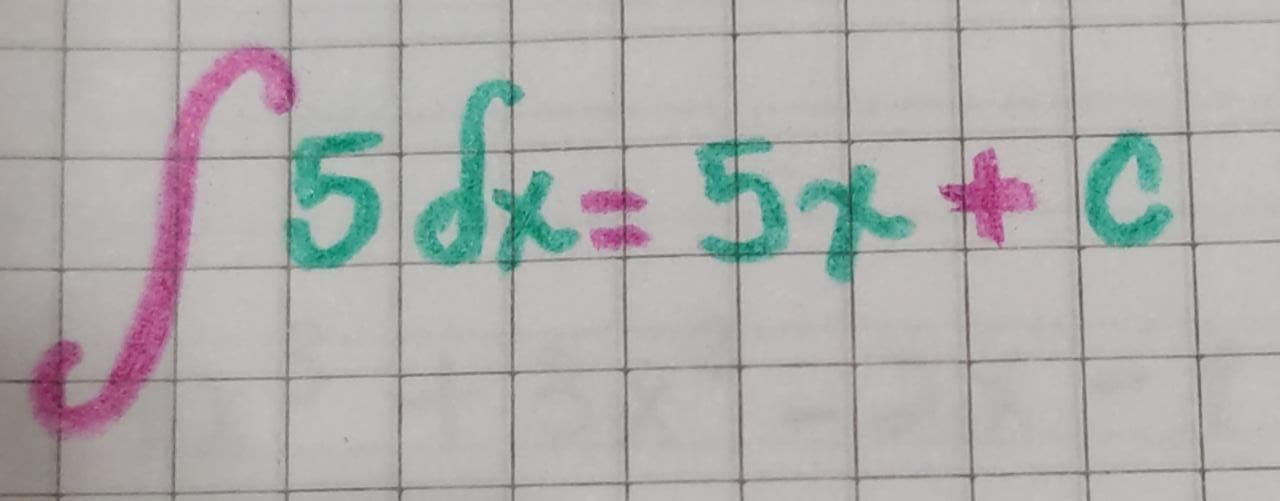 ∫ 5 dx = 5x + C